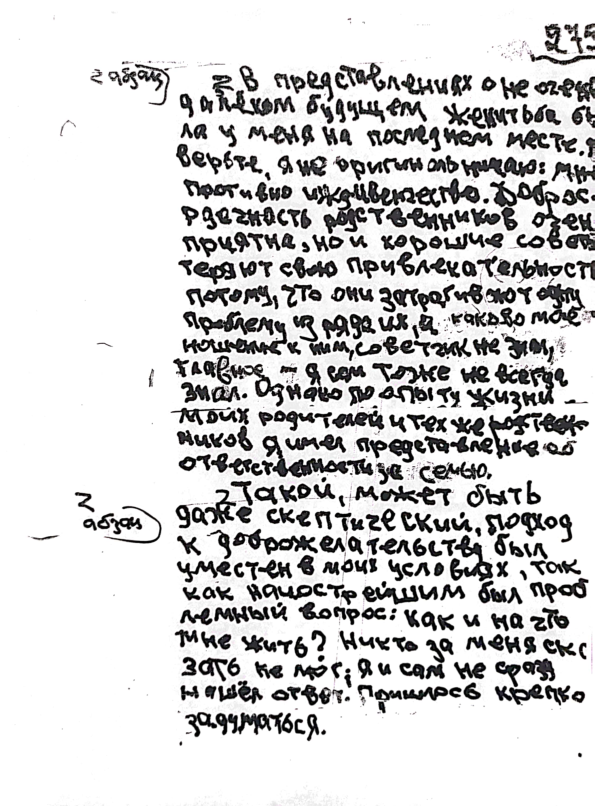 273
Z абзац
Z В представлениях о не очень
далёком будущем женитьба бы
ла у меня на последнем месте. Я
верьте, я не оригинальничаю: мне
противно иждивенчество. Доброс-
рдечность родственников очен
приятна, но и хорошие советы
теряют свою привлекательность
потому, что они затрагивают одну
проблему из ряда их, а каково моё
ношение к ним, советчик не знал,
главное – я сам тоже не всегда
знал. Однако по опыту жизни
моих родителей и тех же родствен-
ников я имел представление об
ответственности за семью.
Z абзац
Z Такой, может быть
даже скептический, подход
к доброжелательству был
уместен в моих условиях, так
как наиострейшим был проб
лемный вопрос: как и на что
мне жить? Никто за меня ска
зать не мог; я и сам не сразу
нашёл ответ. Пришлось крепко
задуматься.